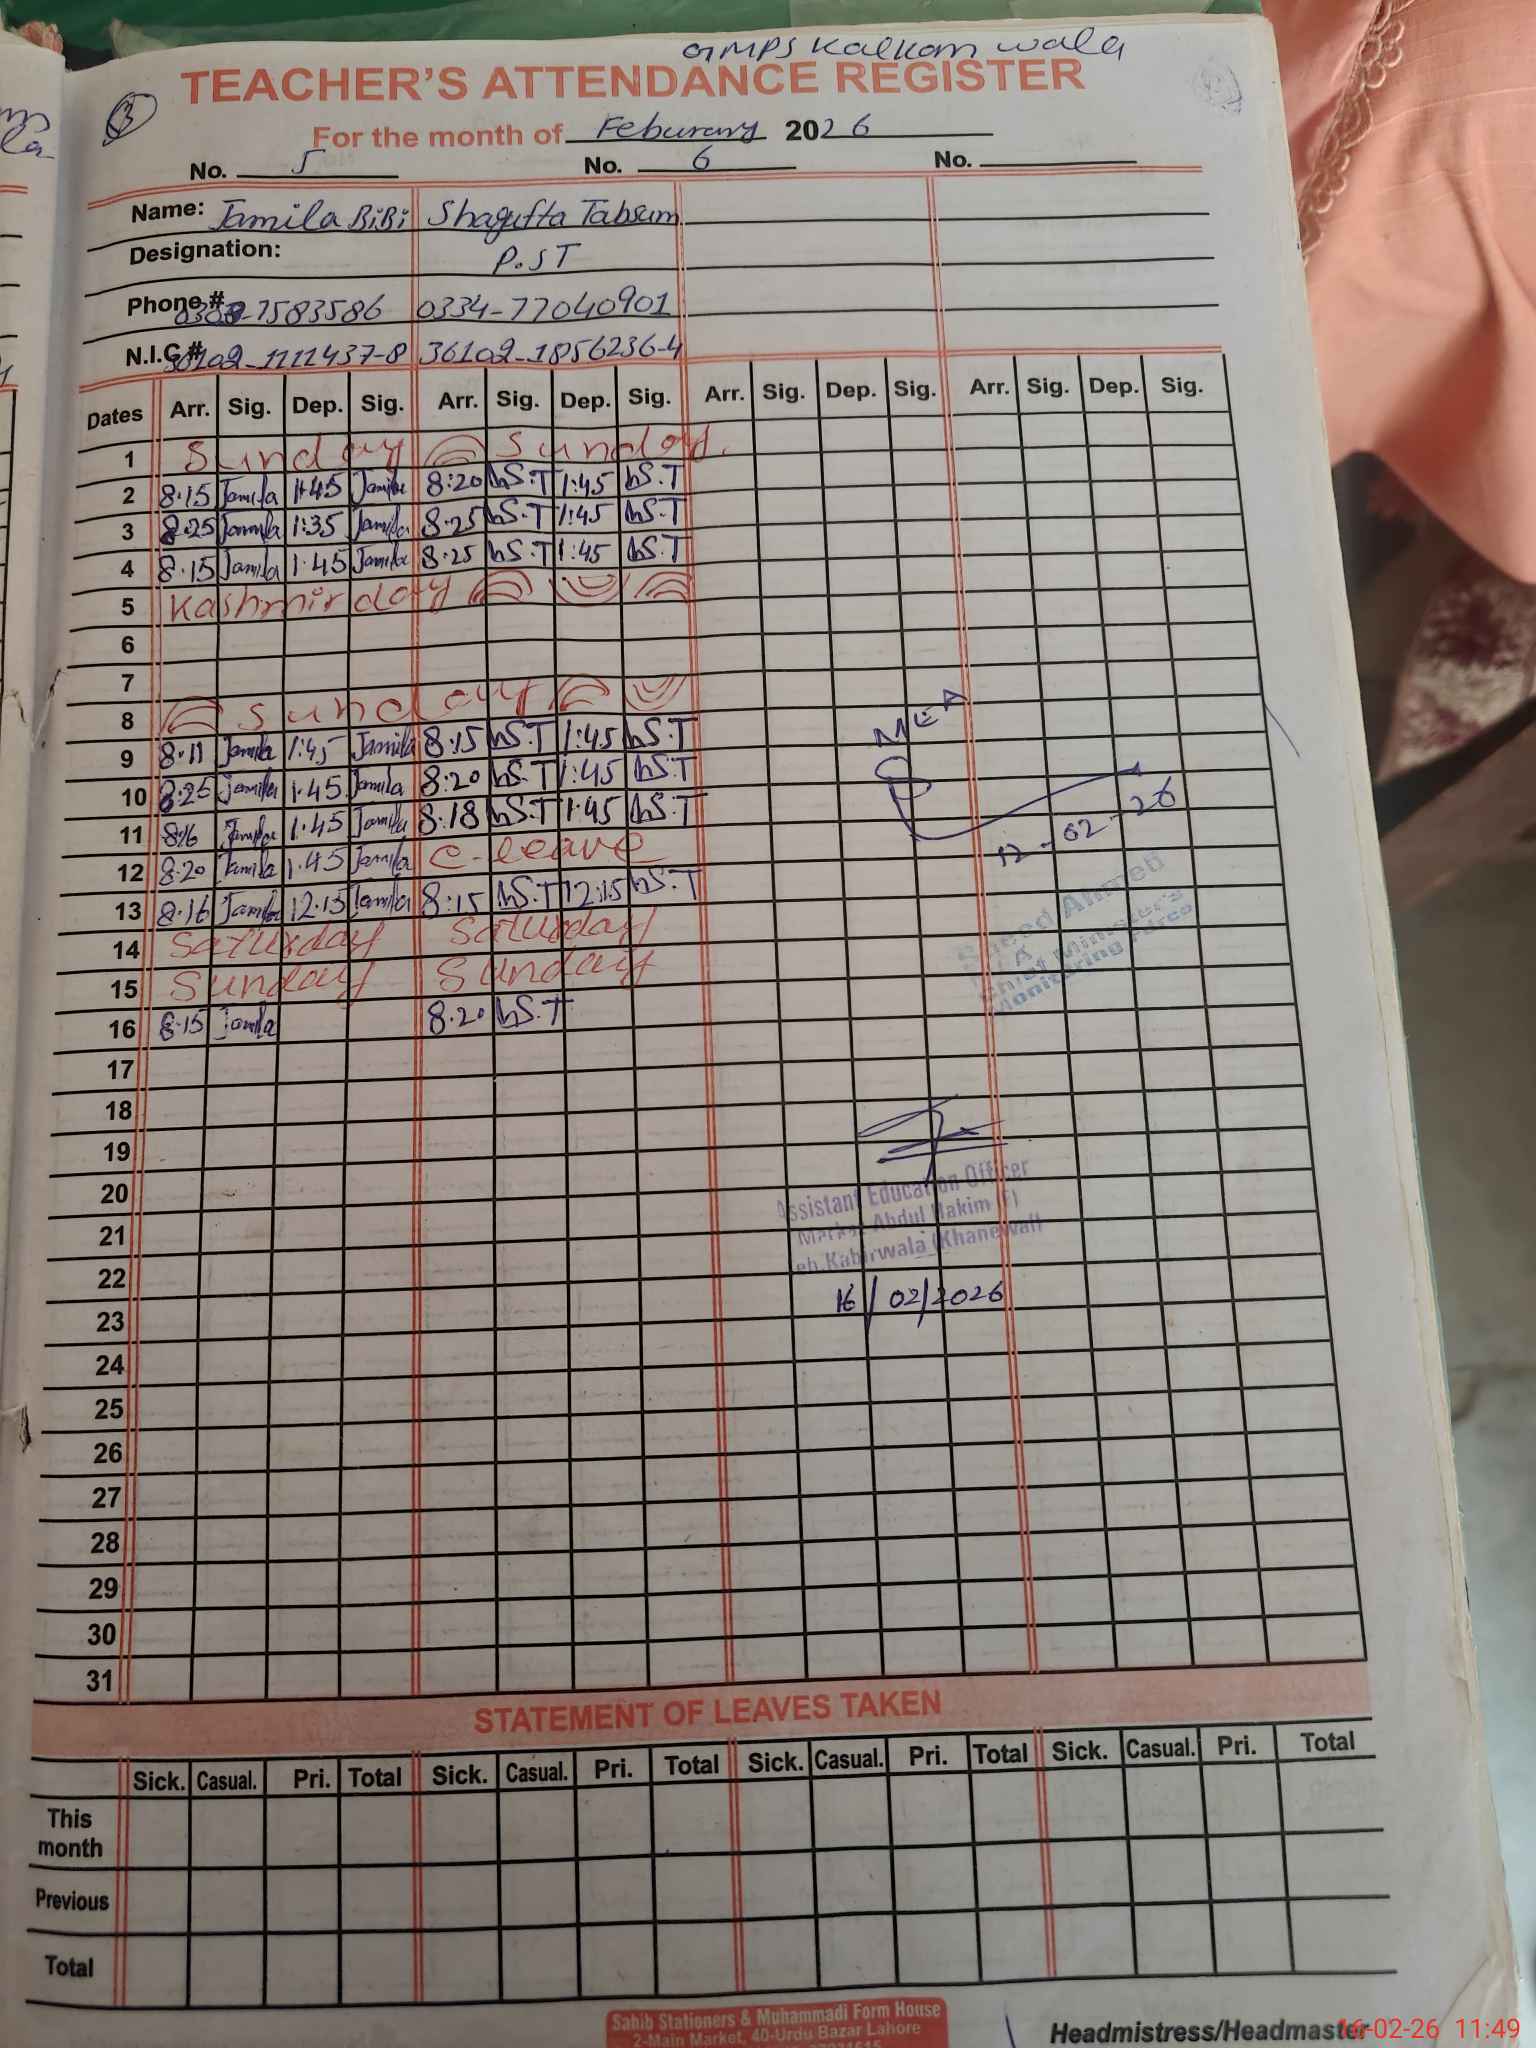 GMPS Kalkan wala
TEACHER'S ATTENDANCE REGISTER
3
For the month of Feburary 2026
No. 5 No. 6 No.
Name: Jamila BiBi Shagufta Tabsum
Designation: P.ST
Phone # -7583586 0334-77040901
N.I.C # 36102-1111437-8 36102-1856236-4
Dates Arr. Sig. Dep. Sig. Arr. Sig. Dep. Sig. Arr. Sig. Dep. Sig. Arr. Sig. Dep. Sig.
1 Sunday Sunday.
2 8.15 Jamila 1.45 Jamila 8:20 hS.T 1:45 hS.T
3 8.25 Jamila 1:35 Jamila 8.25 hS.T 1:45 hS.T
4 8.15 Jamila 1.45 Jamila 8.25 hS.T 1:45 hS.T
5 Kashmir day
6
7
8 Sunday
9 8.11 Jamila 1:45 Jamila 8.15 hS.T 1:45 hS.T
10 8.25 Jamila 1.45 Jamila 8:20 hS.T 1:45 hS.T
11 8.16 Jamila 1.45 Jamila 8:18 hS.T 1:45 hS.T
12 8.20 Jamila 1.45 Jamila C-leave
13 8.16 Jamila 12.15 Jamila 8:15 hS.T 12:15 hS.T
14 Saturday Saturday
15 Sunday Sunday
16 8.15 Jamila 8.20 hS.T
17
18
19
20
21
22
23
24
25
26
27
28
29
30
31
MEA
12-02-26
Saeed Ahmed
Chief Minister's
Monitoring Force
Assistant Education Officer
Markaz Abdul Hakim (F)
Teh.Kabirwala (Khanewal)
16/02/2026
STATEMENT OF LEAVES TAKEN
Sick. Casual. Pri. Total Sick. Casual. Pri. Total Sick. Casual. Pri. Total Sick. Casual. Pri. Total
This month
Previous
Total
Sahib Stationers & Muhammadi Form House
2-Main Market, 40-Urdu Bazar Lahore
Headmistress/Headmaster
16-02-26 11:49